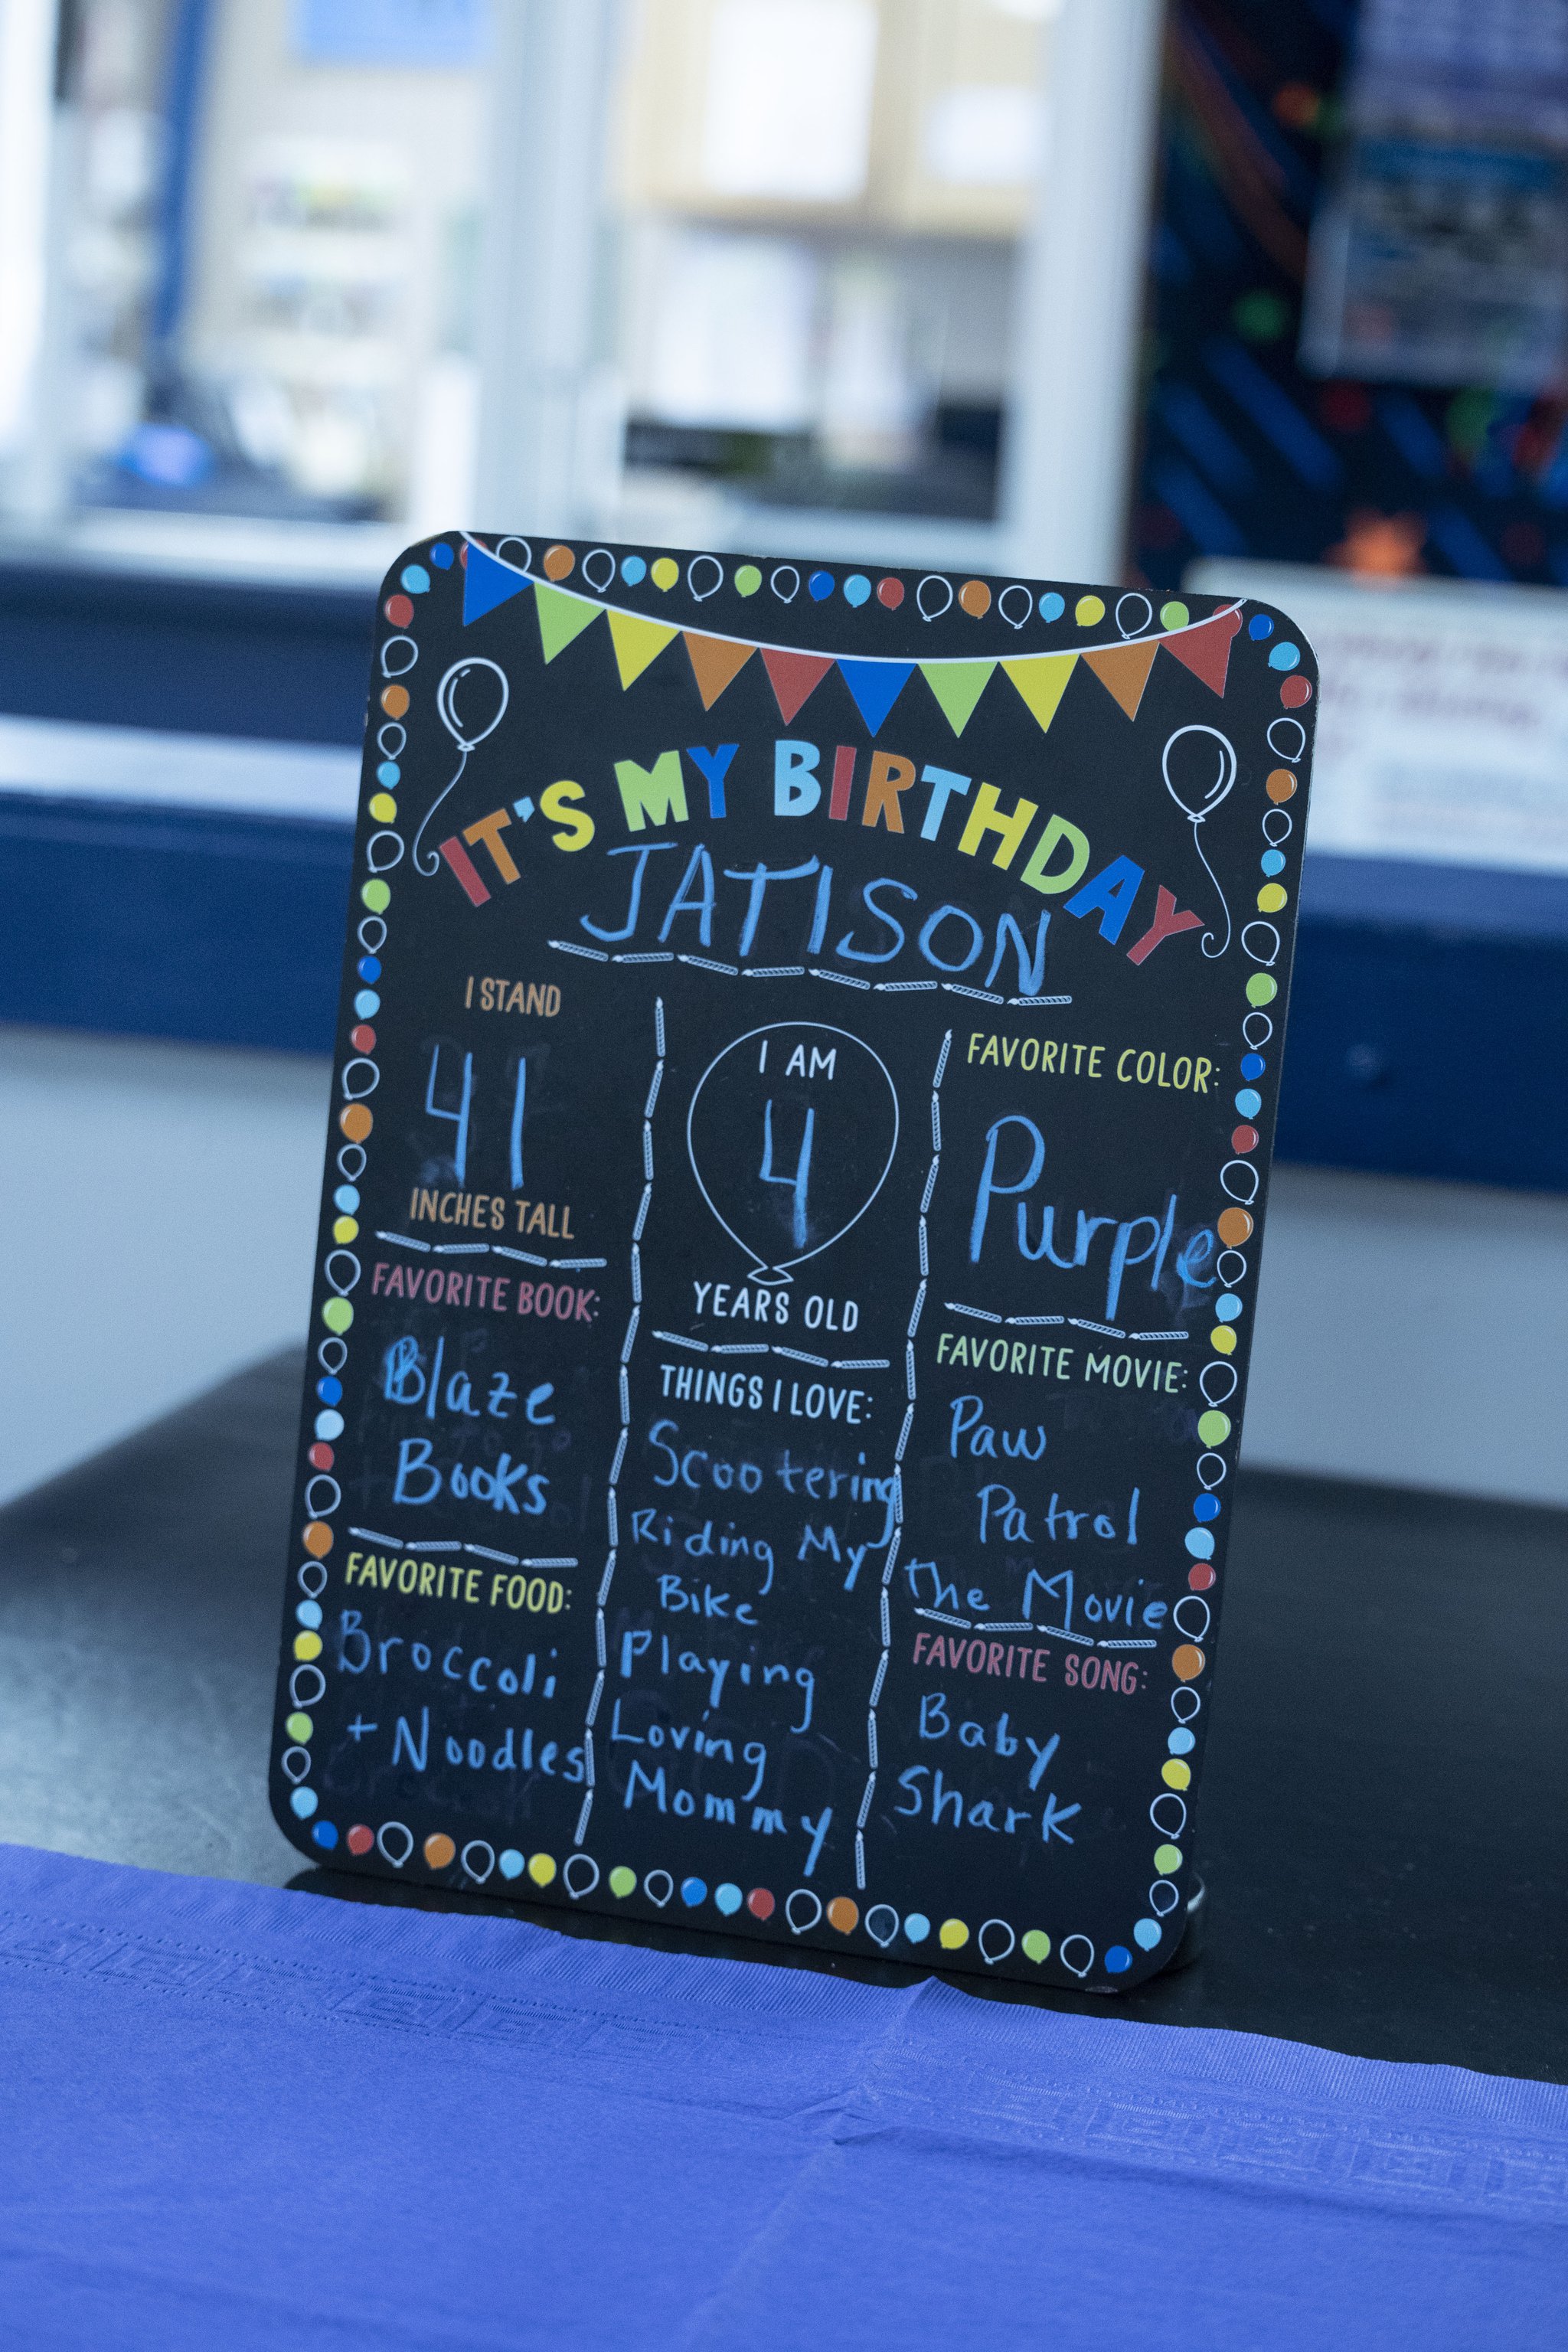 IT'S MY BIRTHDAY
JATISON
I STAND
41
INCHES TALL
FAVORITE BOOK:
Blaze
Books
FAVORITE FOOD:
Broccoli
+ Noodles
I AM
4
YEARS OLD
THINGS I LOVE:
Scootering
Riding My
Bike
Playing
Loving
Mommy
FAVORITE COLOR:
Purple
FAVORITE MOVIE:
Paw
Patrol
the Movie
FAVORITE SONG:
Baby
Shark